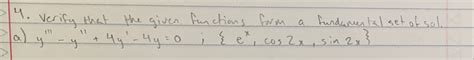 4. Verify that the given functions form a fundamental set of sol.
a) y''' - y'' + 4y' - 4y = 0 ; { e^x, cos 2x, sin 2x }